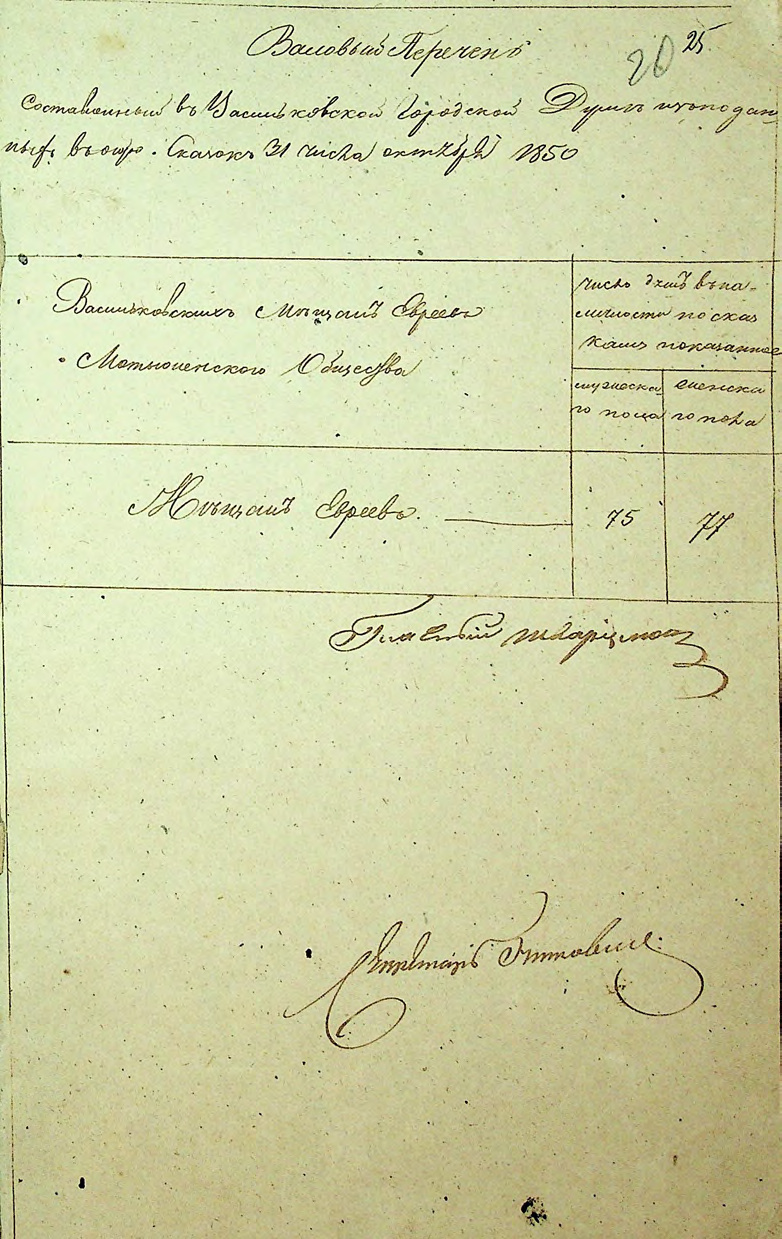 20 25
Валовый Перечень
Составленный въ Васильковской Городской Думѣ изъ подан-
ныхъ въ оную. Сказокъ 31 числа октября 1850
Васильковскихъ мѣщанъ Евреевъ
Мотыженского Общества
число душъ въ на-
личности по сказ
камъ показанное
мужеска
го пола
женска
го пола
Мѣщанъ Евреевъ.
75
77
Главный
Секретарь